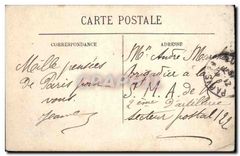 CARTE POSTALE
CORRESPONDANCE
ADRESSE
Mille pensées
de Paris pour
vous
Mr André
brigadier à la
S. M. A. de
2ème d'artillerie
secteur postal 12